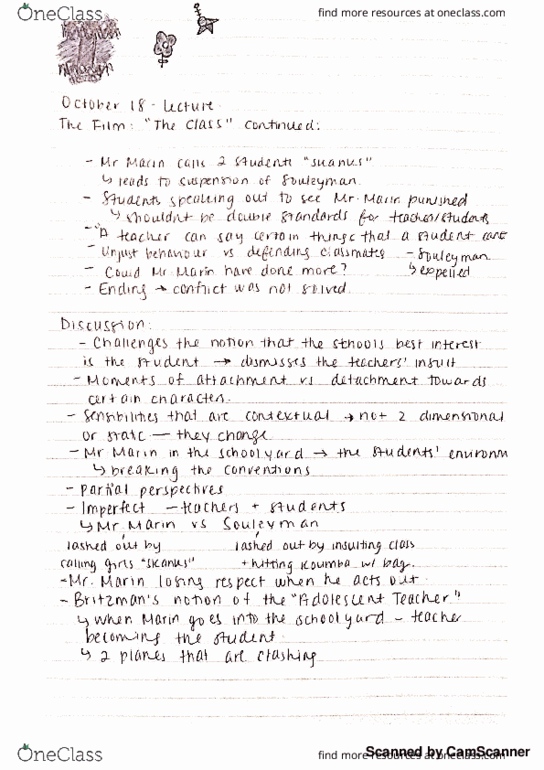 OneClass
find more resources at oneclass.com
October 18 - Lecture
The Film: "The Class" continued:
- Mr Marin calls 2 students "skanks"
↳ leads to suspension of Souleyman.
- Students speaking out to see Mr. Marin punished
↳ shouldnt be double standards for teacher/students
- "A teacher can say certain things that a student cant
- Unjust behaviour vs defending classmates - Souleyman
- Could Mr. Marin have done more? ↳ expelled
- Ending → conflict was not solved.
Discussion:
- Challenges the notion that the schools best interest
is the student → dismisses the teachers' insult
- Moments of attachment vs detachment towards
certain characters.
- Sensibilities that are contextual → not 2 dimensional
or static — they change
- Mr Marin in the schoolyard → the students' environm
↳ breaking the conventions
- Partial perspectives
- Imperfect - teachers + students
↳ Mr. Marin vs Souleyman
lashed out by lashed out by insulting class
calling girls "skanks" + hitting Koumba w/ bag.
- Mr. Marin losing respect when he acts out.
- Britzman's notion of the "Adolescent Teacher"
↳ when Marin goes into the schoolyard - teacher
becoming the student.
↳ 2 planes that are clashing
OneClass
find more resources at oneclass.com
Scanned by CamScanner